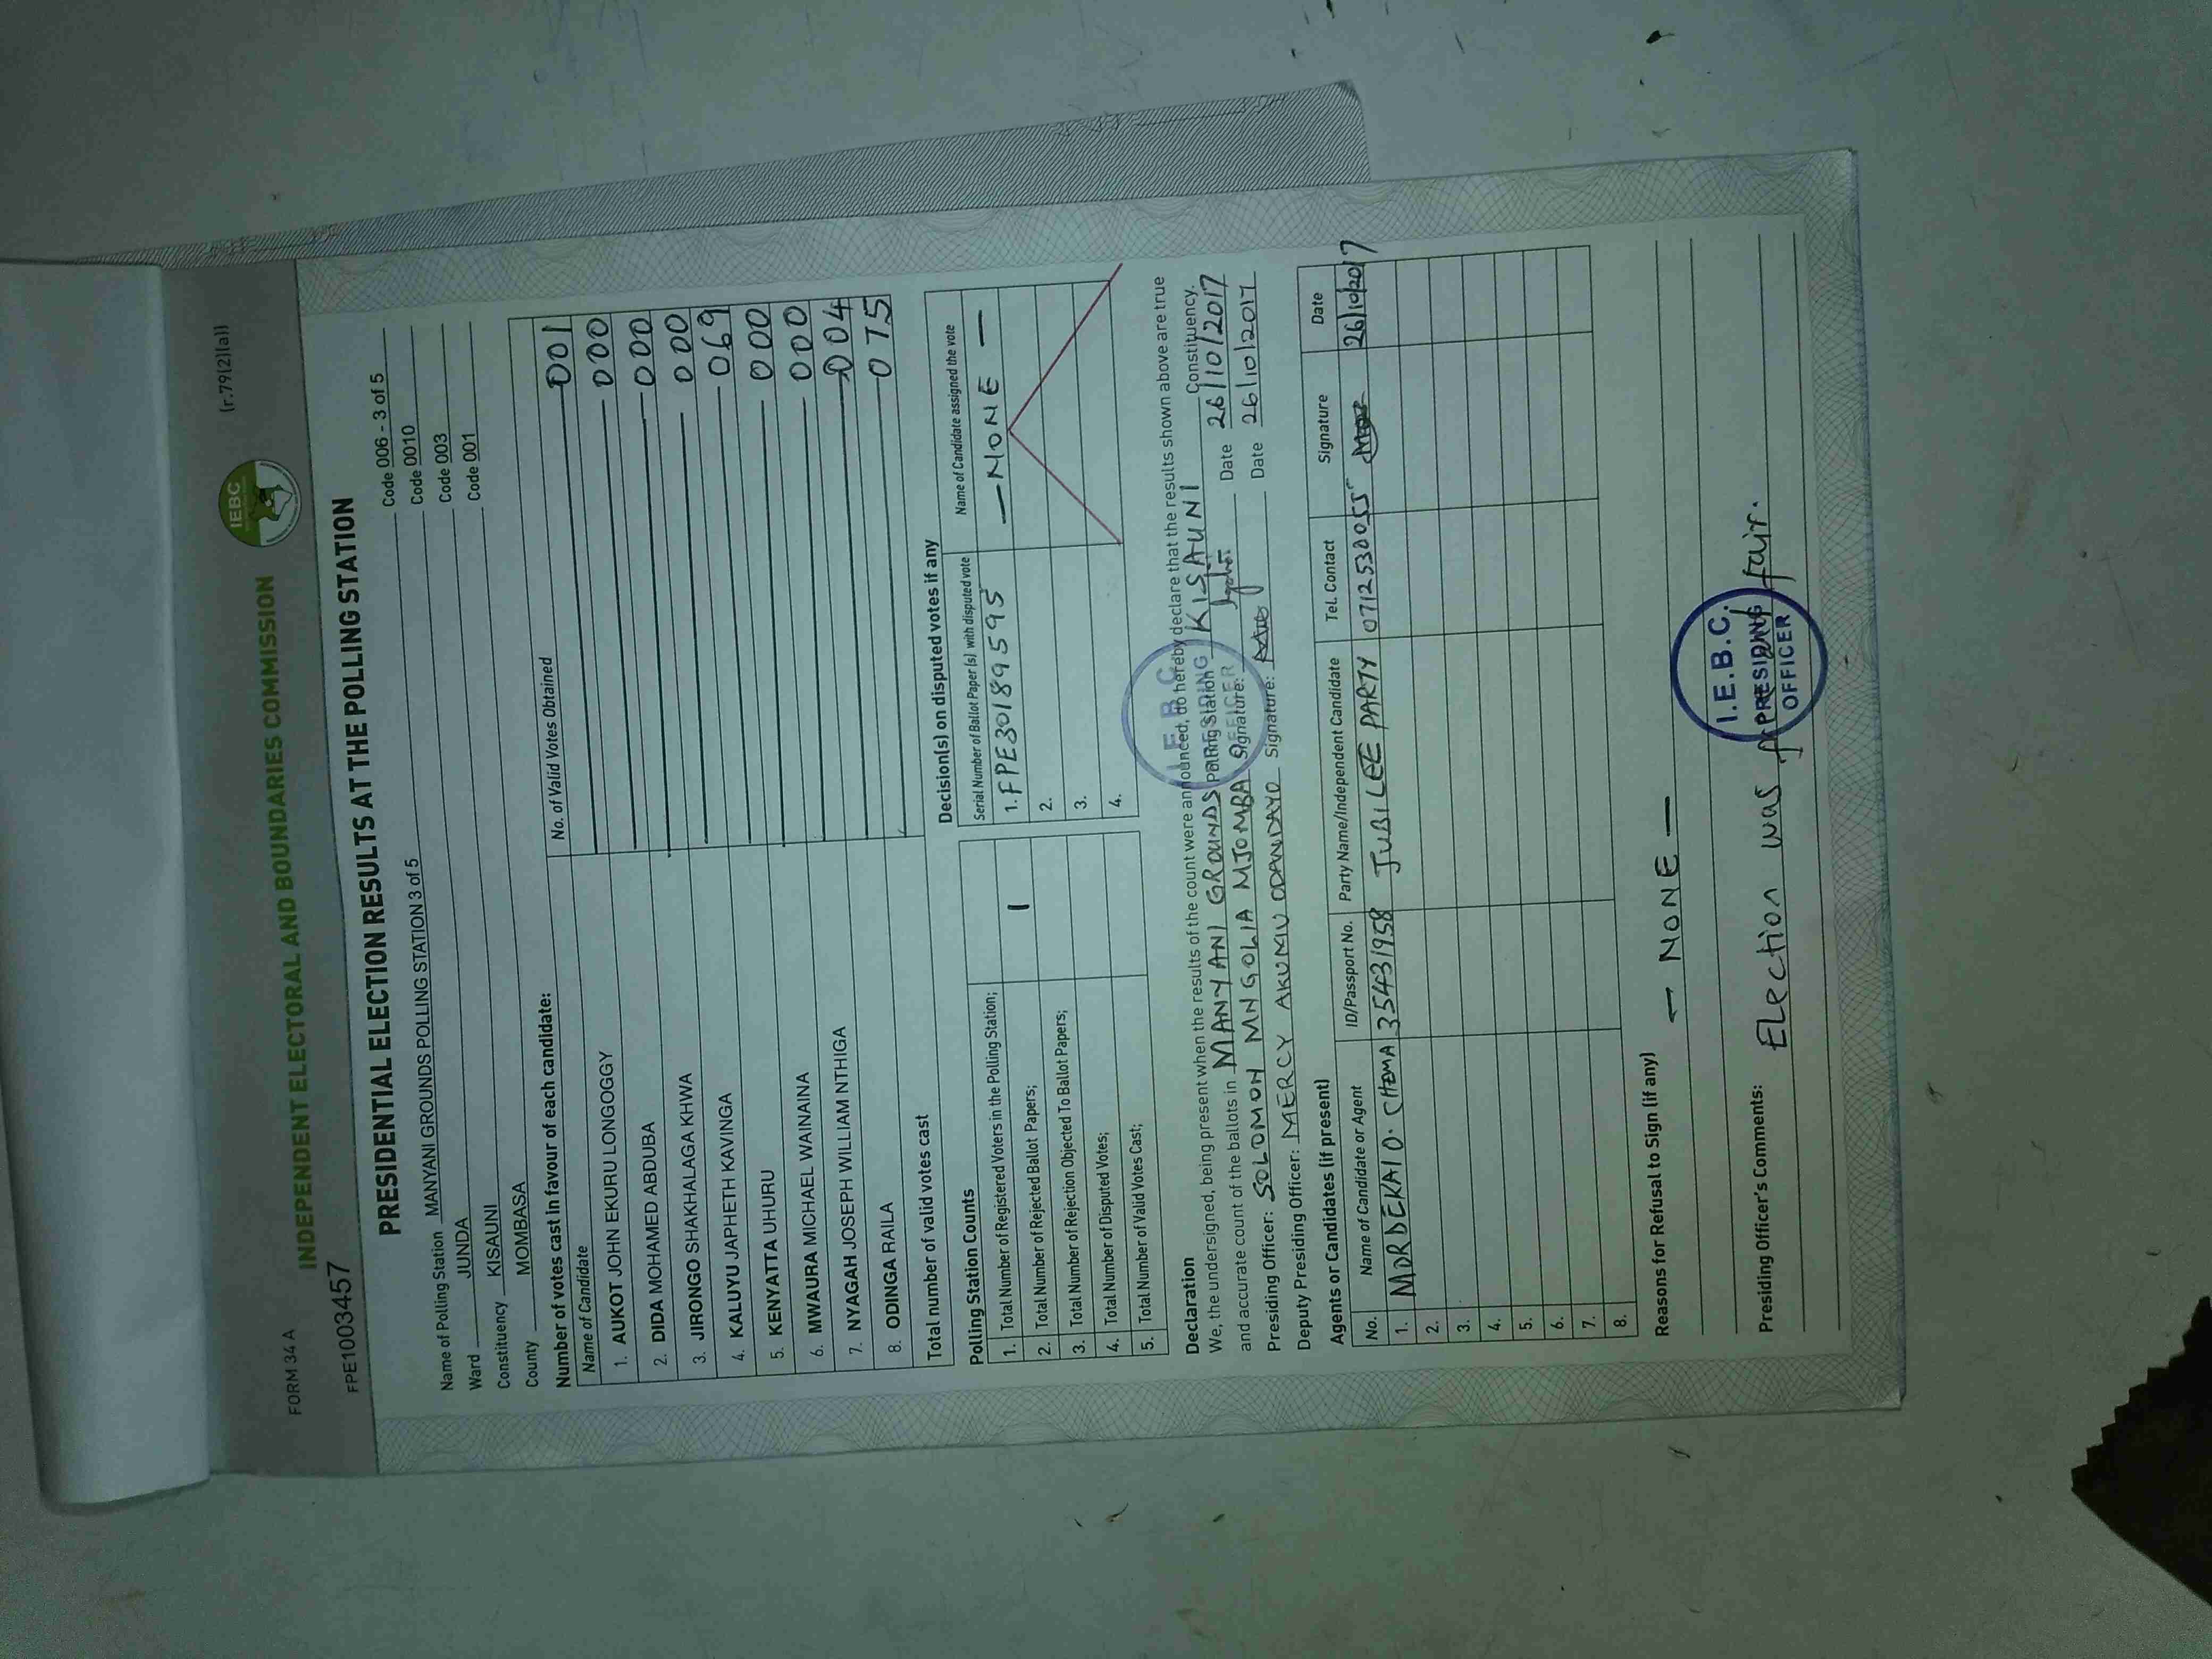 FORM 34 A
(r.79(2)(a))
INDEPENDENT ELECTORAL AND BOUNDARIES COMMISSION
IEBC
FPE1003457
PRESIDENTIAL ELECTION RESULTS AT THE POLLING STATION
Name of Polling Station MANYANI GROUNDS POLLING STATION 3 of 5 Code 006 - 3 of 5
Ward JUNDA Code 0010
Constituency KISAUNI Code 003
County MOMBASA Code 001
Number of votes cast in favour of each candidate:
Name of Candidate No. of Valid Votes Obtained
1. AUKOT JOHN EKURU LONGOGGY 001
2. DIDA MOHAMED ABDUBA 000
3. JIRONGO SHAKHALAGA KHWA 000
4. KALUYU JAPHETH KAVINGA 000
5. KENYATTA UHURU 069
6. MWAURA MICHAEL WAINAINA 000
7. NYAGAH JOSEPH WILLIAM NTHIGA 000
8. ODINGA RAILA 004
Total number of valid votes cast 075
Polling Station Counts
1. Total Number of Registered Voters in the Polling Station;
2. Total Number of Rejected Ballot Papers; 1
3. Total Number of Rejection Objected To Ballot Papers;
4. Total Number of Disputed Votes;
5. Total Number of Valid Votes Cast;
Decision(s) on disputed votes if any
Serial Number of Ballot Paper (s) with disputed vote Name of Candidate assigned the vote
1. FPE30189595 — NONE —
2.
3.
4.
Declaration
We, the undersigned, being present when the results of the count were announced, do hereby declare that the results shown above are true
and accurate count of the ballots in MANYANI GROUNDS Polling Station KISAUNI Constituency.
Presiding Officer: SOLOMON MNGOLIA MJOMBA Signature: Date 26/10/2017
Deputy Presiding Officer: MERCY AKUMU ODANDAYO Signature: Date 26/10/2017
I.E.B.C.
PRESIDING
OFFICER
Agents or Candidates (if present)
No. Name of Candidate or Agent ID/Passport No. Party Name/Independent Candidate Tel. Contact Signature Date
1. MORDEKAI O. CHOMA 35431958 JUBILEE PARTY 0712530055 26/10/2017
2.
3.
4.
5.
6.
7.
8.
Reasons for Refusal to Sign (if any)
— NONE —
Presiding Officer's Comments: Election was fair.
I.E.B.C.
PRESIDING
OFFICER